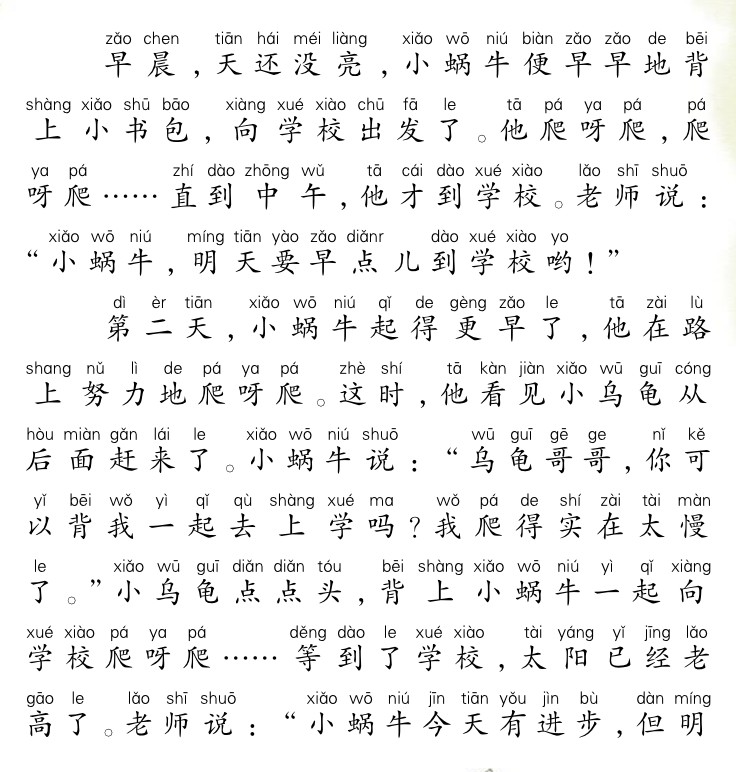 zǎo chen tiān hái méi liàng xiǎo wō niú biàn zǎo zǎo de bēi
早晨,天还没亮,小蜗牛便早早地背
shàng xiǎo shū bāo xiàng xué xiào chū fā le tā pá ya pá pá
上小书包,向学校出发了。他爬呀爬,爬
ya pá zhí dào zhōng wǔ tā cái dào xué xiào lǎo shī shuō
呀爬……直到中午,他才到学校。老师说:
xiǎo wō niú míng tiān yào zǎo diǎnr dào xué xiào yo
“小蜗牛,明天要早点儿到学校哟!”
dì èr tiān xiǎo wō niú qǐ de gèng zǎo le tā zài lù
第二天,小蜗牛起得更早了,他在路
shang nǔ lì de pá ya pá zhè shí tā kàn jiàn xiǎo wū guī cóng
上努力地爬呀爬。这时,他看见小乌龟从
hòu miàn gǎn lái le xiǎo wō niú shuō wū guī gē ge nǐ kě
后面赶来了。小蜗牛说:“乌龟哥哥,你可
yǐ bēi wǒ yì qǐ qù shàng xué ma wǒ pá de shí zài tài màn
以背我一起去上学吗?我爬得实在太慢
le xiǎo wū guī diǎn diǎn tóu bēi shàng xiǎo wō niú yì qǐ xiàng
了。”小乌龟点点头,背上小蜗牛一起向
xué xiào pá ya pá děng dào le xué xiào tài yáng yǐ jīng lǎo
学校爬呀爬……等到了学校,太阳已经老
gāo le lǎo shī shuō xiǎo wō niú jīn tiān yǒu jìn bù dàn míng
高了。老师说:“小蜗牛今天有进步,但明